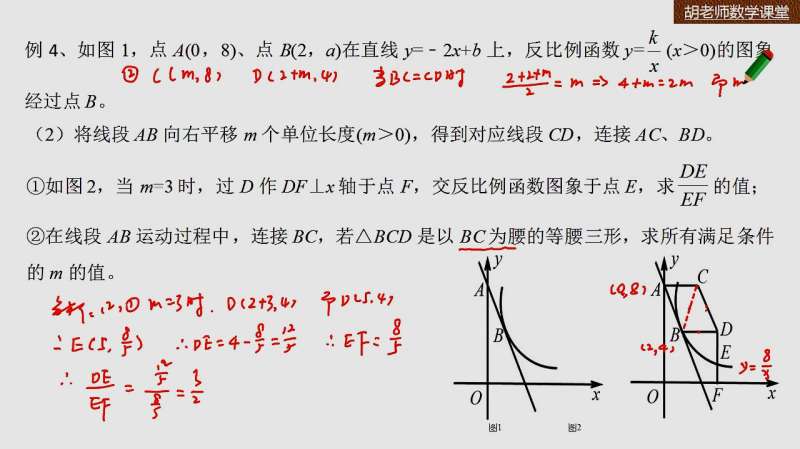 胡老师数学课堂
例 4、如图 1，点 A(0，8)、点 B(2，a)在直线 y=﹣2x+b 上，反比例函数 y=k/x (x＞0)的图象
② C(m,8) D(2+m,4) 当BC=CD时 (2+2+m)/2=m ⇒ 4+m=2m 即m
经过点 B。
（2）将线段 AB 向右平移 m 个单位长度(m＞0)，得到对应线段 CD，连接 AC、BD。
①如图 2，当 m=3 时，过 D 作 DF⊥x 轴于点 F，交反比例函数图象于点 E，求 DE/EF 的值；
②在线段 AB 运动过程中，连接 BC，若△BCD 是以 BC 为腰的等腰三形，求所有满足条件
的 m 的值。
(2)① m=3时. D(2+3,4) 即D(5,4)
∴E(5,8/5) ∴DE=4-8/5=12/5 ∴EF=8/5
∴ DE/EF = (12/5)/(8/5) = 3/2
y
A
B
O
x
图1
y
(0,8) A
C
B
D
(2,4)
E
y=8/x
O
F
x
图2